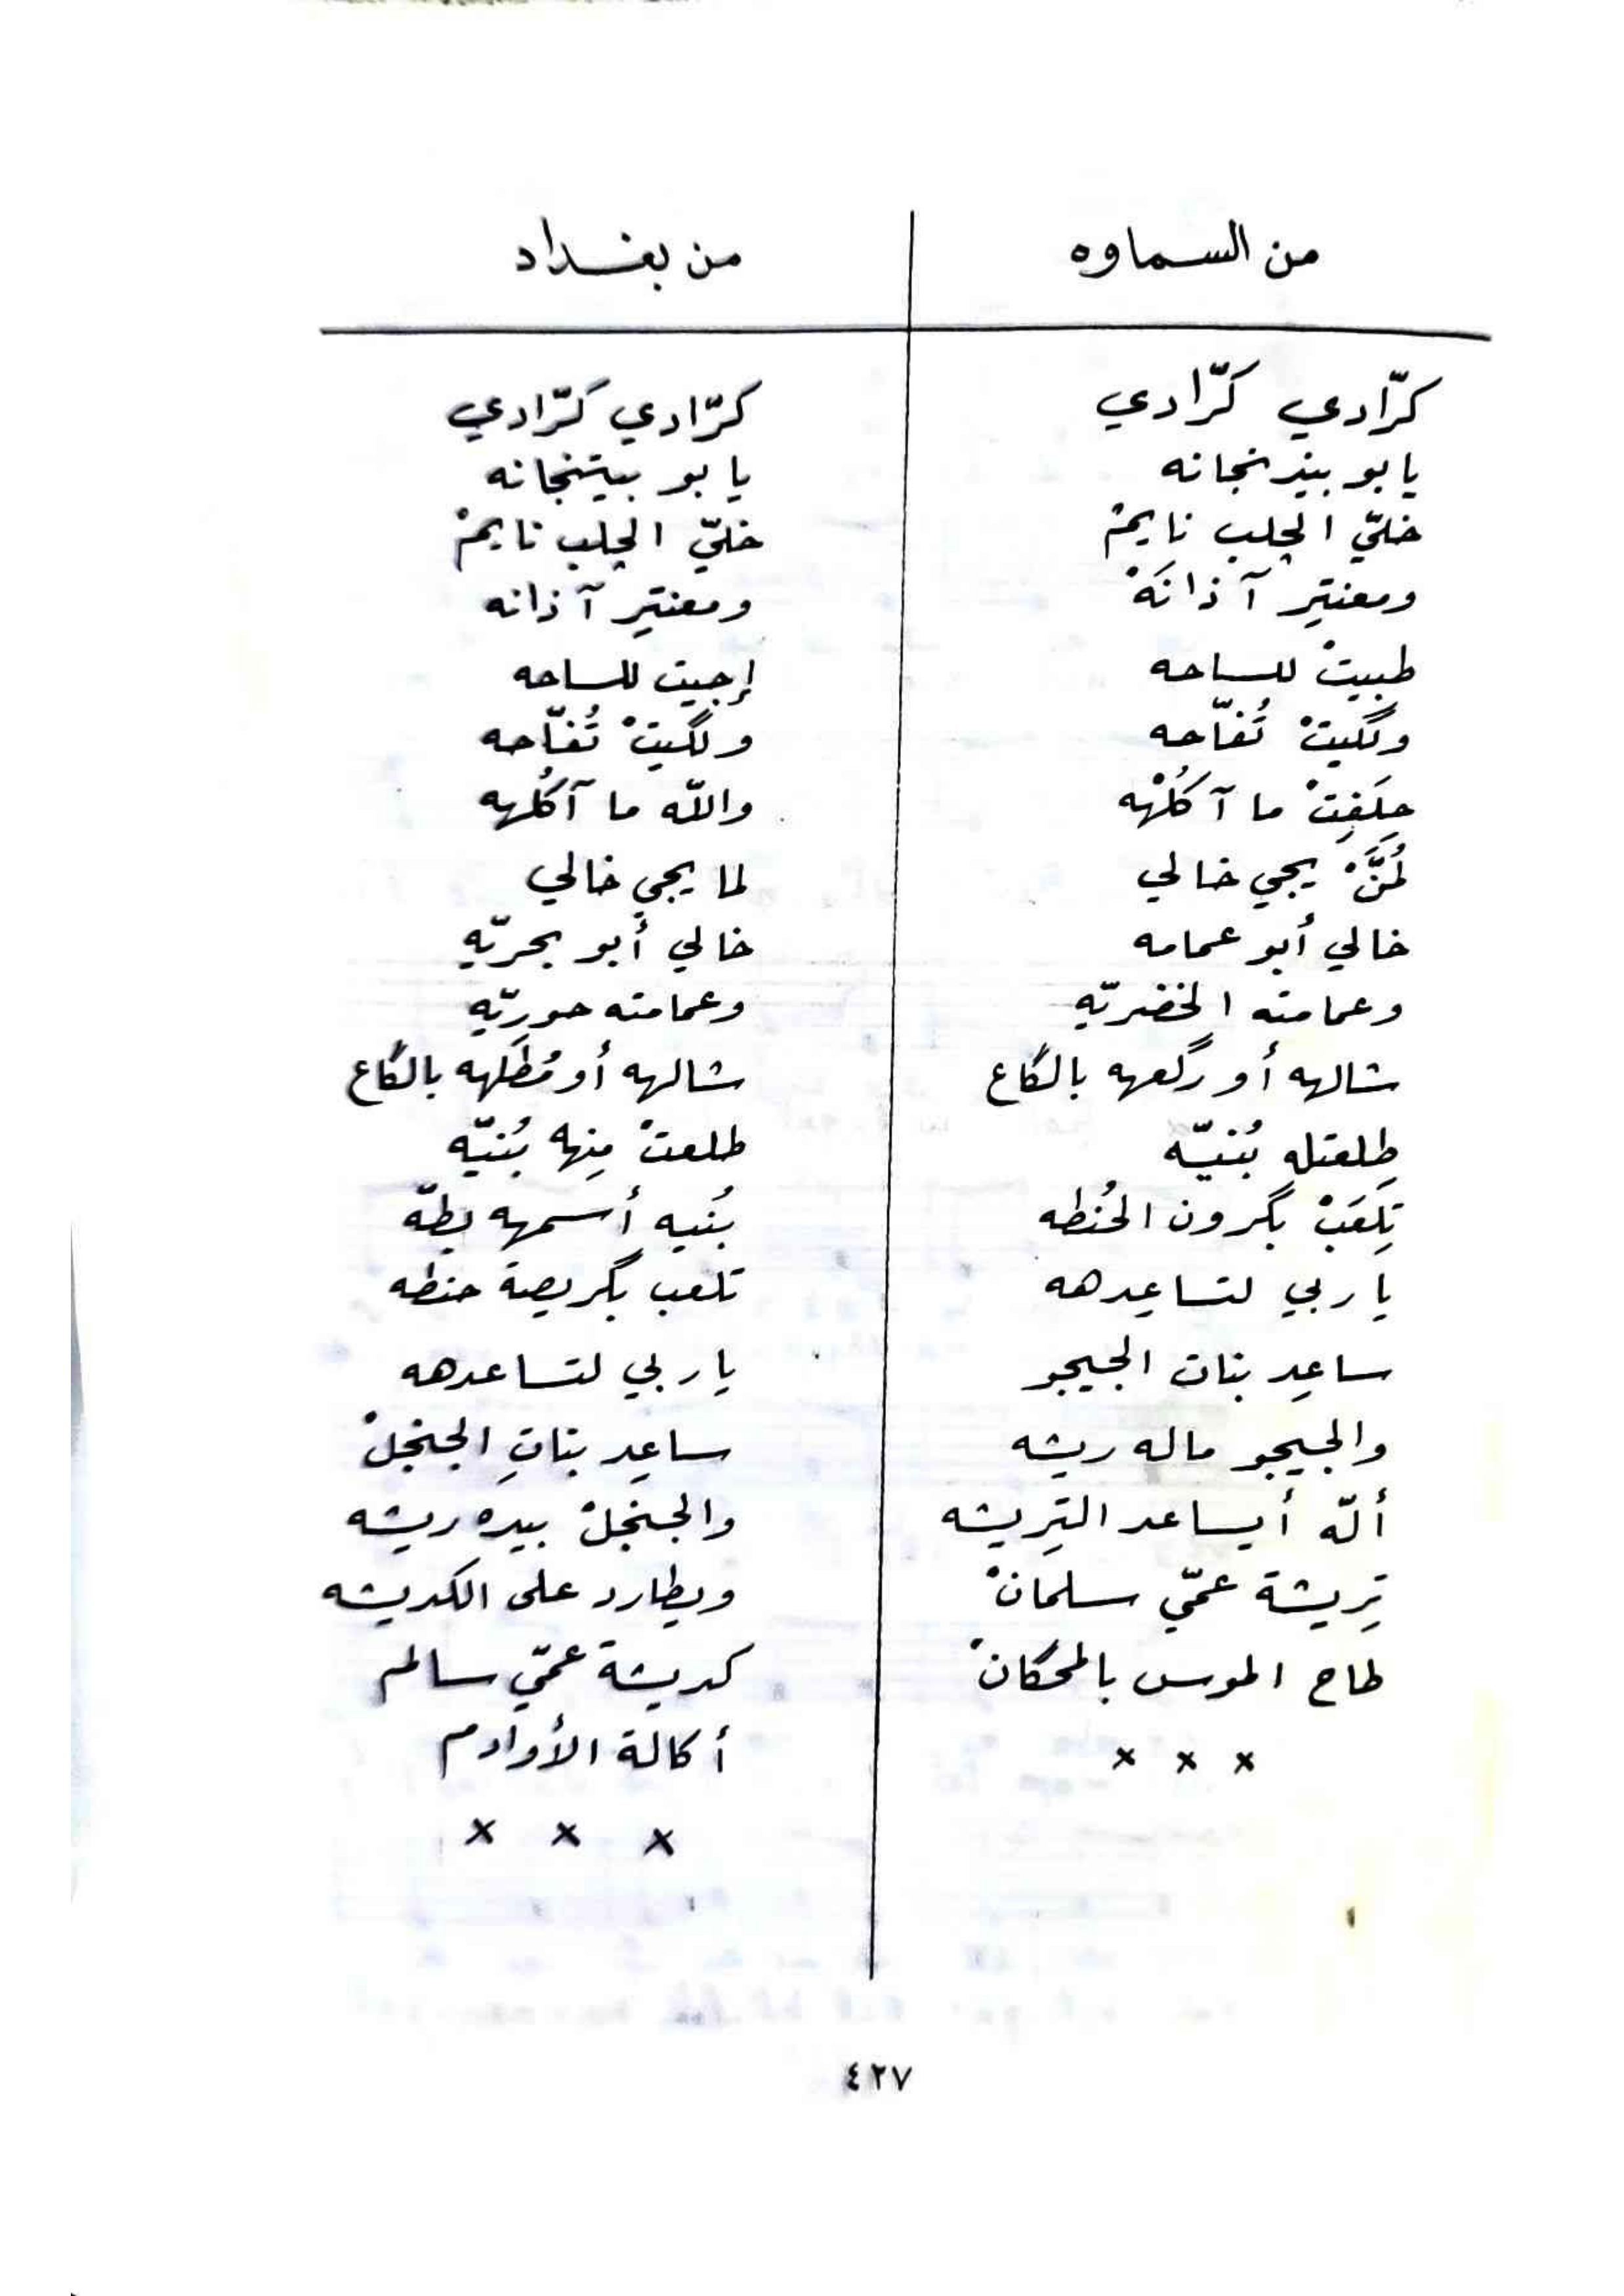 من السماوه
كرّادي كرّادي
يا بو بيذنجانه
خليّ الچلب نايمْ
ومعنتِر آذانَهْ
طبيتْ للساحه
ولگيتْ تُفّاحه
حِلَفِتْ ما آكُلْهه
لُمَّنْ يجي خالي
خالي أبو عمامه
وعمامته الخضريّه
شالهه أو رگعهه بالگاع
طِلعتله بُنيّه
تِلعَبْ بگرون الحُنطه
يا ربي لتساعِدهه
ساعِد بنات الجيجو
والجيجو ماله ريشه
ألّه أيساعد التِريشه
تِريشة عمّي سلمانْ
طاح الموس بالمحكانْ
× × ×
من بغداد
كرّادي كرّادي
يا بو بيتنجانه
خليّ الچلب نايمْ
ومعنتِر آذانه
إجيت للساحه
ولگيتْ تُفّاحه
والله ما آكُلهه
لما يجي خالي
خالي أبو بحريّه
وعمامته حوريّه
شالهه أو مُطَلهه بالگاع
طلعتْ مِنهه بُنيّه
بُنيه أسمهه بطّه
تلعب بگريصة حنطه
يا ربي لتساعدهه
ساعِد بناتِ الجنجلْ
والجنجلْ بيده ريشه
ويطارد على الكديشه
كديشة عمّي سالم
أكالة الأوادم
× × ×
٤٢٧